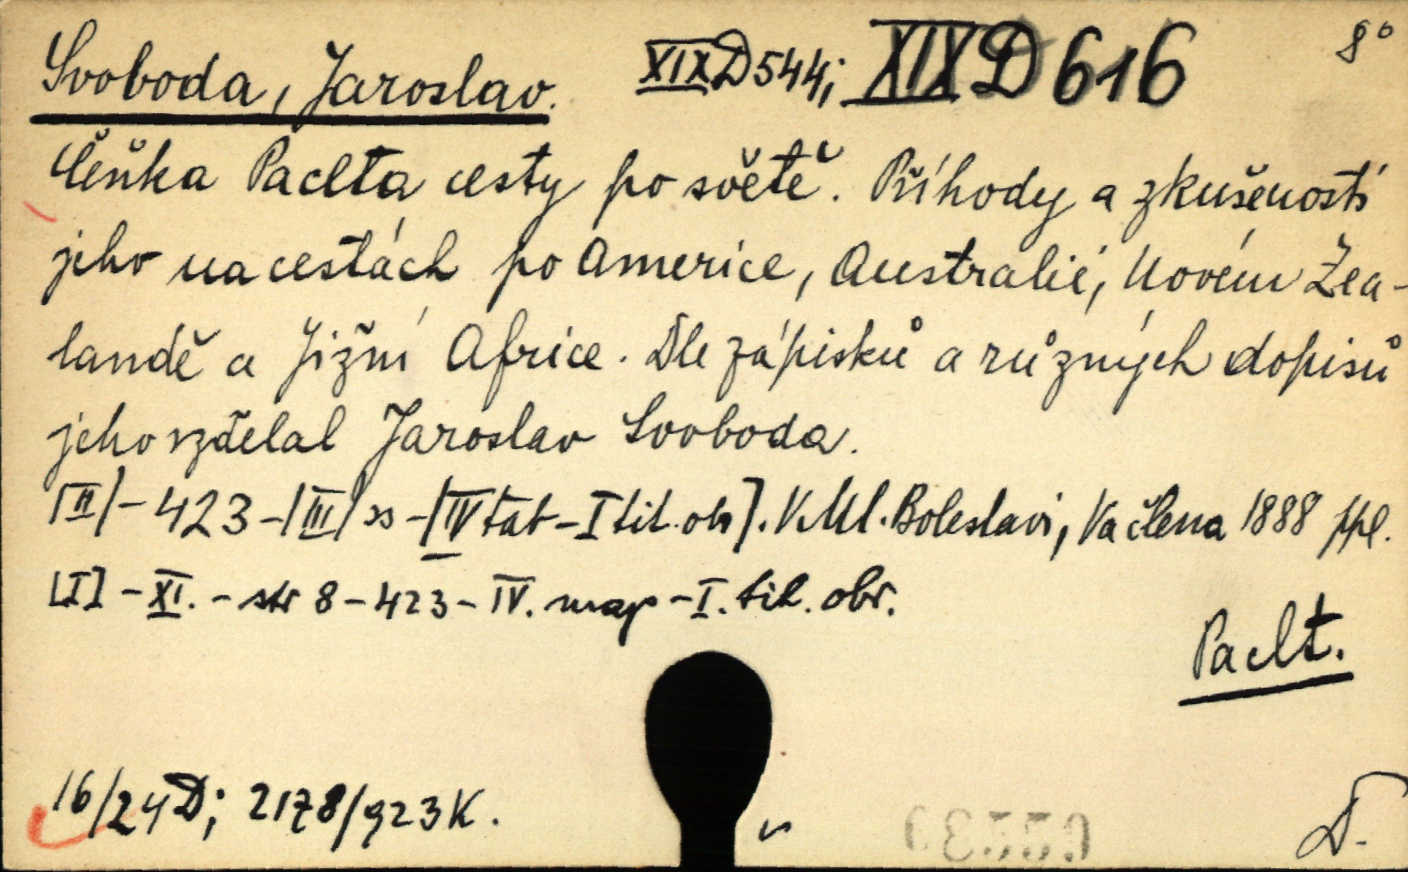 Svoboda, Jaroslav. XIX D 544; XIX D 616 8°
Čeňka Paclta cesty po světě. Příhody a zkušenosti
jeho na cestách po Americe, Australii, Novém Zea-
landě a Jižní Africe. Dle zápisků a různých dopisů
jeho vzdělal Jaroslav Svoboda.
[II] - 423 - [III] ss - [IV tab - I tit. obr]. V Ml. Boleslavi, Vačlena 1888 ppl.
[I] - XI. - str 8 - 423 - IV. map - I. tit. obr.
Paclt.
16/24 D; 2178/923 K.
D.